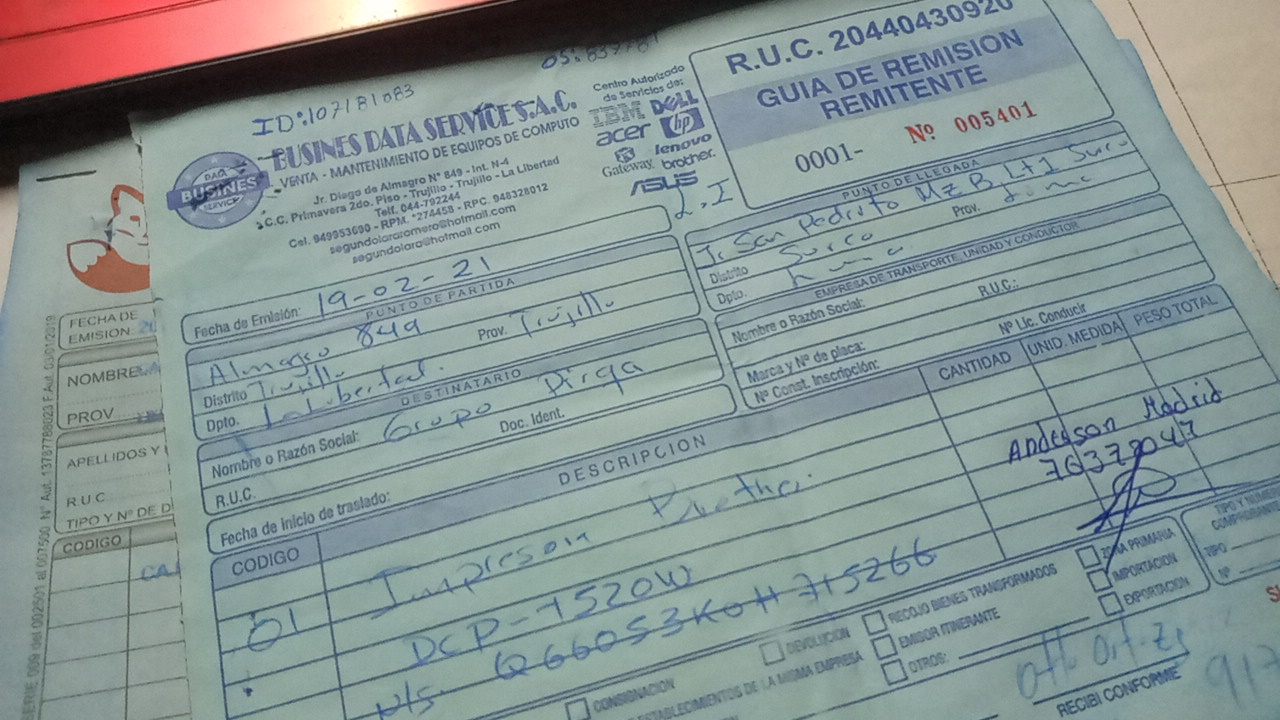 ID:107181083
BUSINES DATA SERVICE S.A.C.
VENTA - MANTENIMIENTO DE EQUIPOS DE COMPUTO
Jr. Diego de Almagro N° 849 - Int. N-4
C.C. Primavera 2do. Piso - Trujillo - Trujillo - La Libertad
Telf. 044-792244
Cel. 949953690 - RPM. *274458 - RPC. 948328012
segundolararomero@hotmail.com
segundolara@hotmail.com
BUSINES
SERVICE
Centro Autorizado
de Servicios de:
IBM DELL
acer hp
Gateway lenovo
brother.
ASUS
R.U.C. 20440430920
GUIA DE REMISION
REMITENTE
0001- Nº 005401
Fecha de Emisión: 19-02-21
PUNTO DE PARTIDA
Almagro 849
Distrito Trujillo Prov. Trujillo
Dpto. La Libertad.
PUNTO DE LLEGADA
San Pedrito Mz B Lt 1 Surco
Distrito Surco Prov. Lima
Dpto. Lima
DESTINATARIO
Nombre o Razón Social: Grupo Dirga
R.U.C. Doc. Ident.
EMPRESA DE TRANSPORTE, UNIDAD Y CONDUCTOR
Nombre o Razón Social: R.U.C.:
Marca y Nº de placa:
Nº Const. Inscripción: Nº Lic. Conducir
Fecha de Inicio de traslado:
CODIGO DESCRIPCION CANTIDAD UNID. MEDIDA PESO TOTAL
01 Impresora
DCP-T520W
Anderson Madrid
CONSIGNACION
DEVOLUCION
ESTABLECIMIENTOS DE LA MISMA EMPRESA
RECOJO BIENES TRANSFORMADOS
EMISOR ITINERANTE
OTROS:
ZONA PRIMARIA
IMPORTACION
EXPORTACION
TIPO
Nº
RECIBI CONFORME
FECHA DE
EMISION.
NOMBRE
PROV
APELLIDOS Y
R.U.C
TIPO Y Nº DE D
CODIGO
SERIE 009 del 002501 al 007500 N° Aut. 13787788023 F.Aut. 03/01/2019